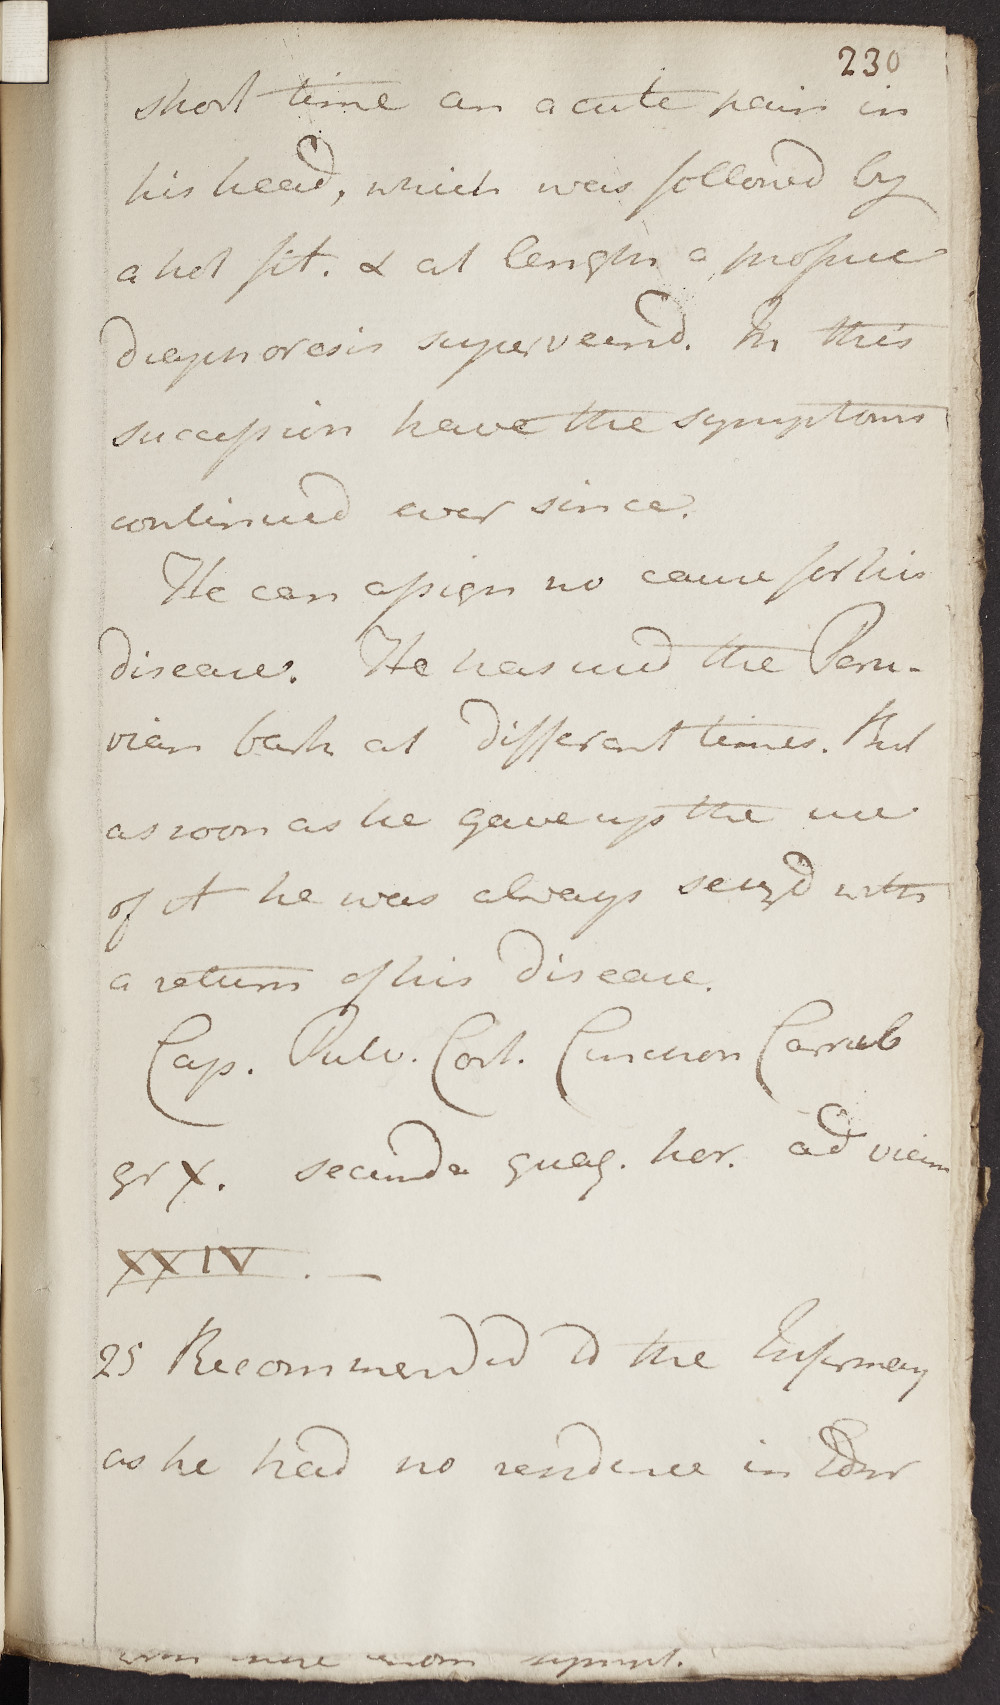 230
short time an acute pain in
his head, which was followed by
a hot fit. & at length a profuse
diaphoresis superveend. In this
succession have the symptoms
continued ever since.
He can assign no cause for his
disease. He has used the Peru-
vian bark at different times. But
as soon as he gave up the use
of it he was always seizd with
a return of his disease.
Cap. Pulv. Cort. Cinchon Carrub
gr X. secunda quaq. hor. ad vicem
XXIV. —
25 Recommended to the Infirmary
as he had no residence in Edinr
sympt.